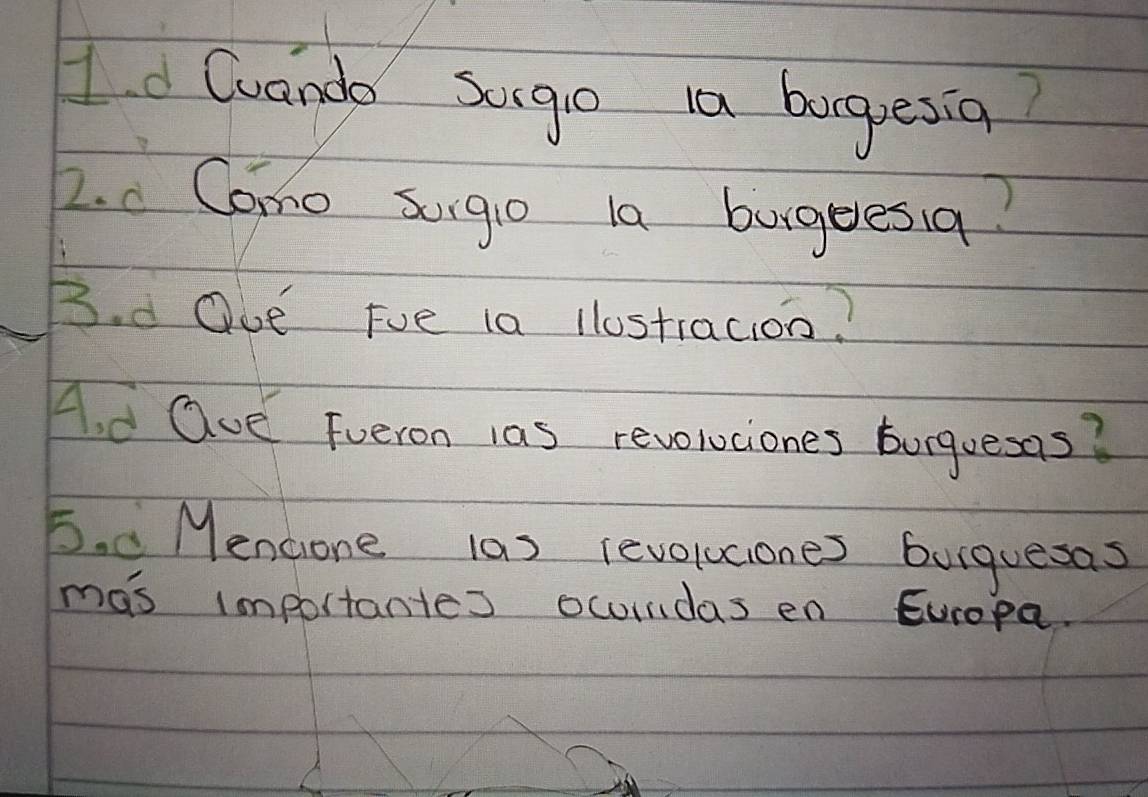 1.¿Cuándo surgio la burguesia?
2.¿Cómo surgio la burguesia?
3.¿Qué Fue la ilustración?
4.¿Qué Fueron las revoluciones burguesas?
5.¿Mencione las revoluciones burguesas
más importantes ocurridas en Europa.